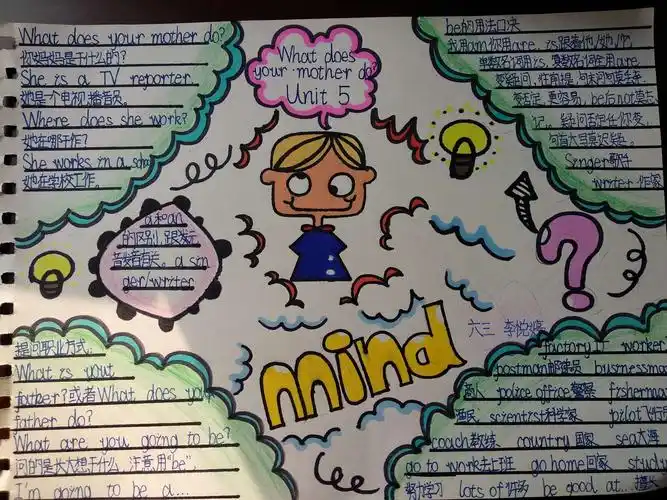 What does your mother do?
你妈妈是干什么的?
She is a TV reporter.
她是个电视播音员.
Where does she work?
她在哪工作?
She works in a
她在学校工作.
What does
your mother do
Unit 5
be的用法口决
我用am你用are, is跟着他/她/它.
单数名词用is,复数名词全用are.
变疑问,往前提,句末问号莫丢弃.
变否定,更容易, be后not莫忘
记. 疑问否定任你变,
句首大写莫迟疑.
Singer歌手
writer 作家
a和an
的区别,跟发元
音或者有关. a sin
ger/writer
mind
六三 李悦
提问职业方式:
What is yout
father?或者What does you
father do?
What are you going to be?
问的是长大想干什么,注意用"be".
I'm going to be a...
factory工 worker
postman邮递员 businessma
商人 police office警察 fisherman
渔民 scientist科学家 pilot飞行
coach教练 country 国家 sea大海
go to work去上班 go home回家 study
努力学习 lots of许多 be good at...擅长